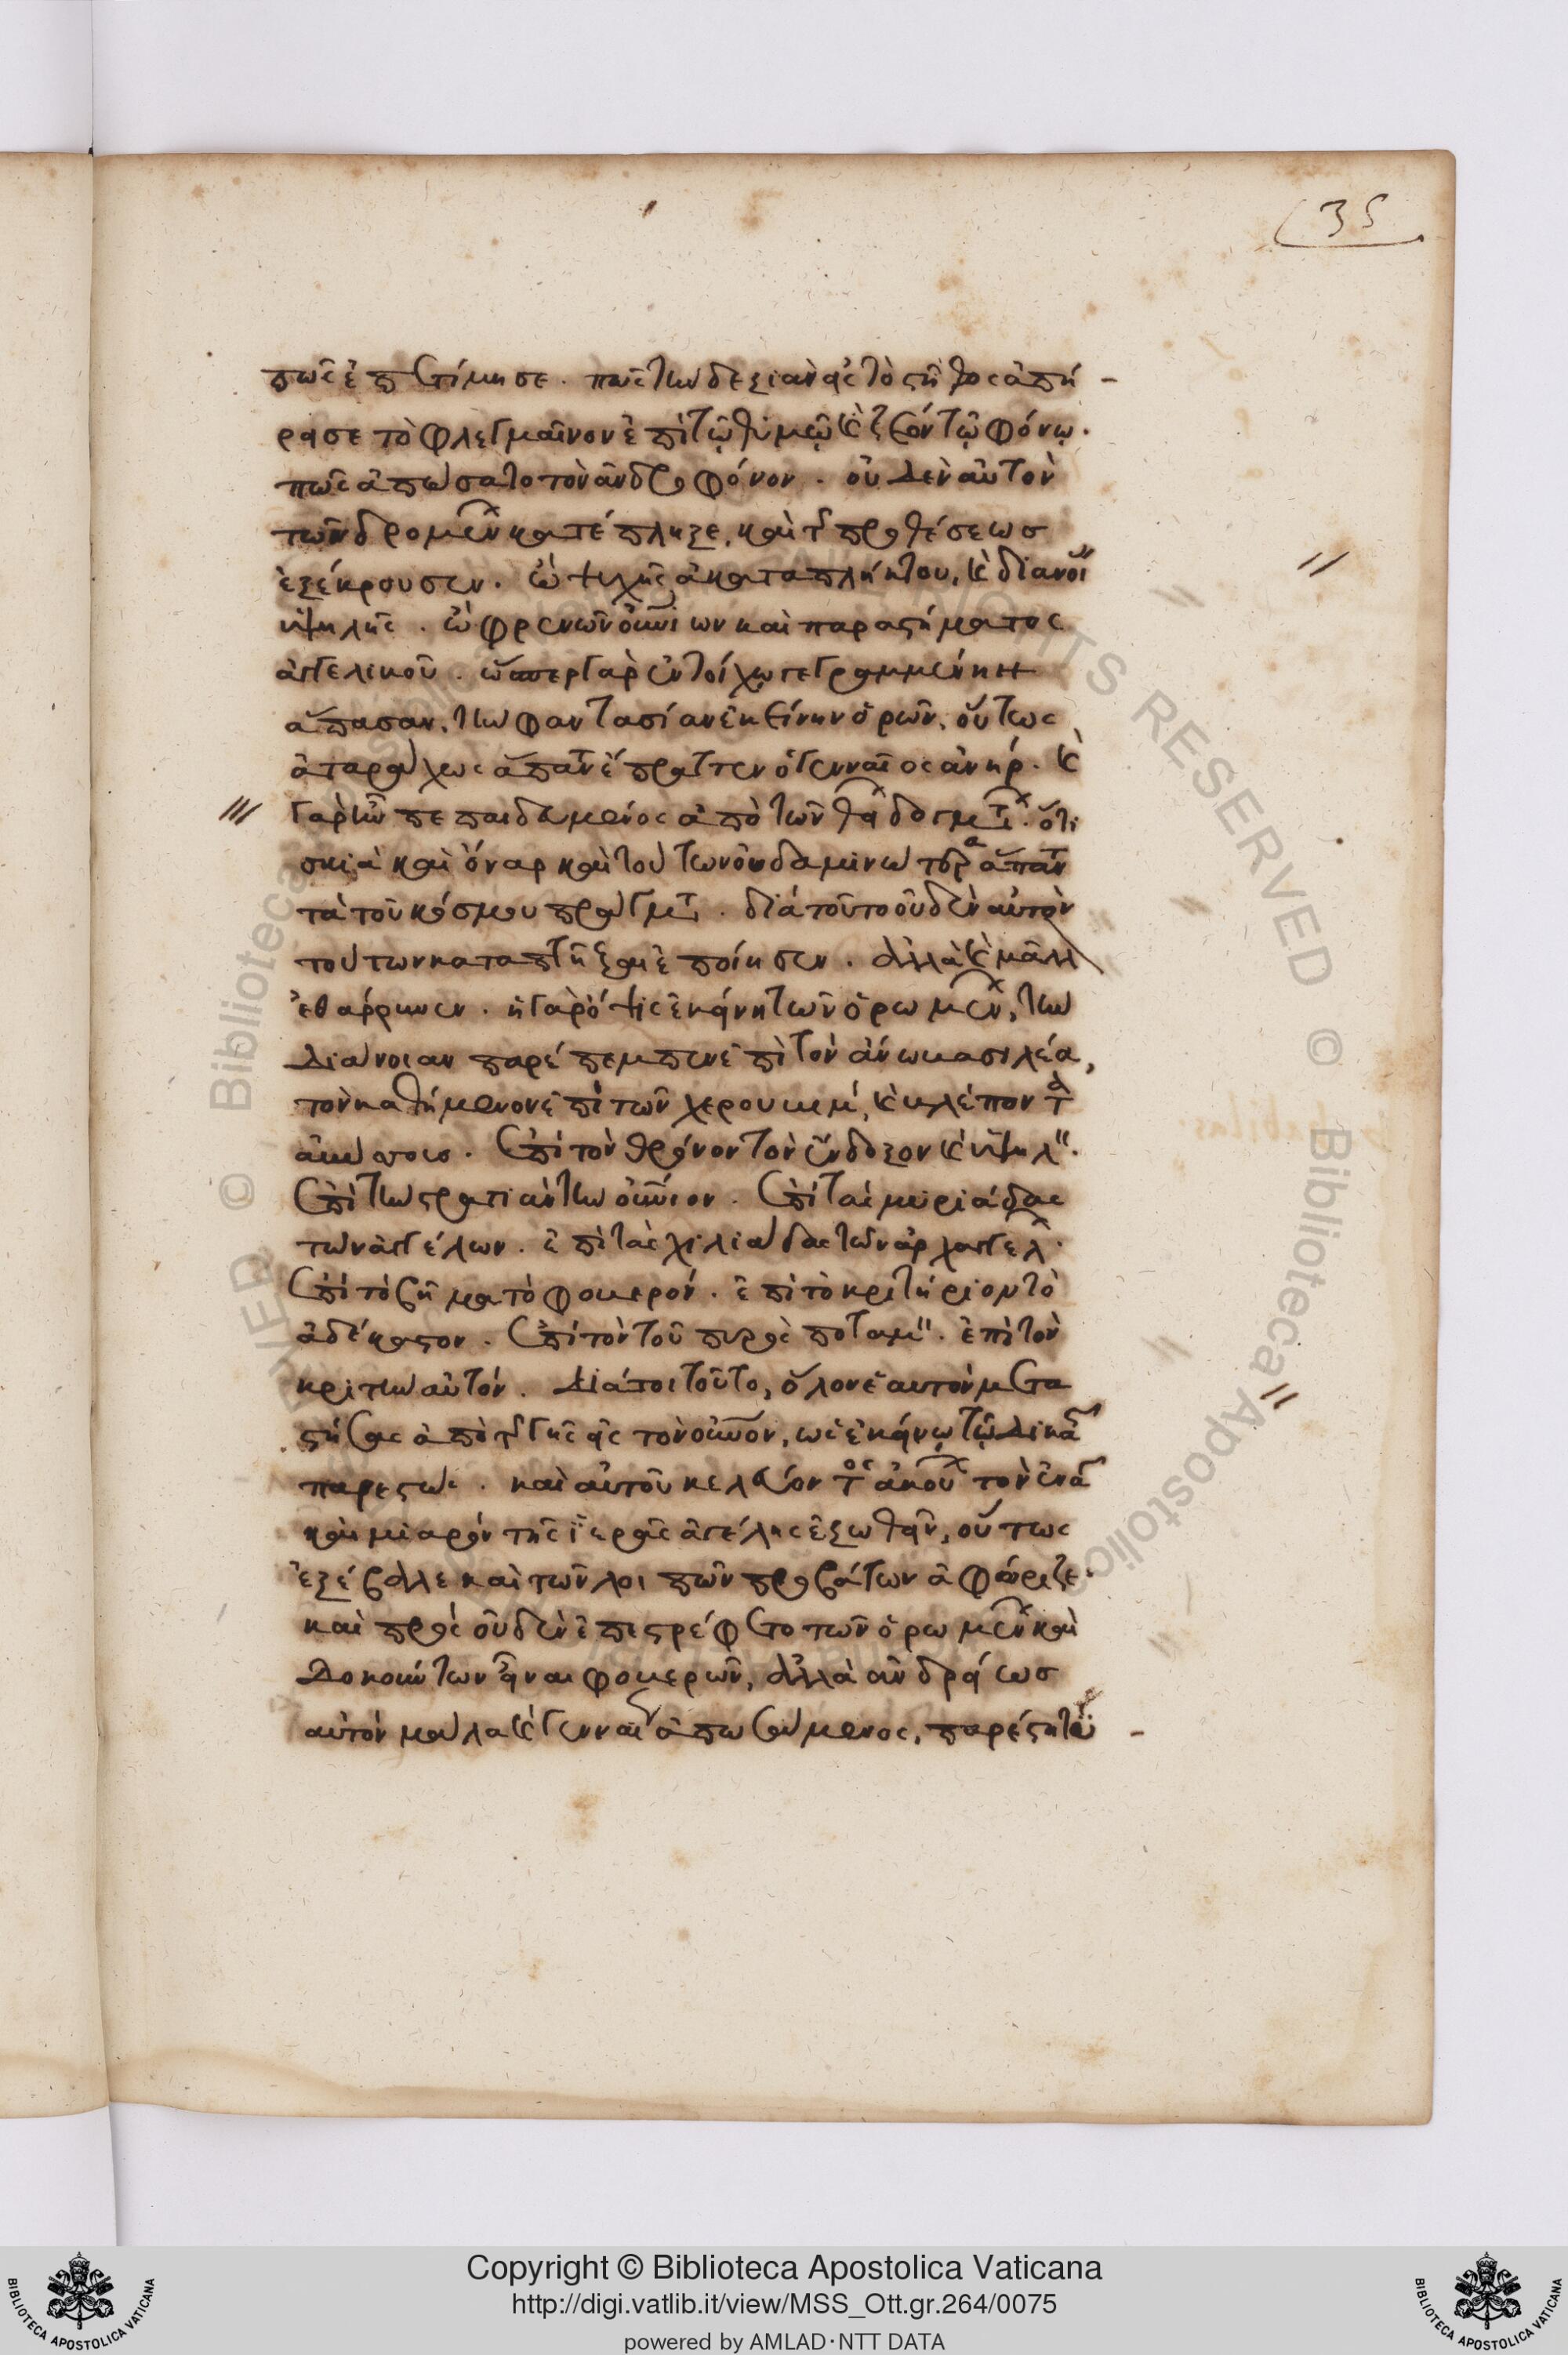 35
πῶς ἐπετίμησε. πῶς τὴν δεξιὰν εἰς τὸ στῆθος ἀπή-
ρεισε τὸ φλεγμαῖνον ἐπὶ τῷ θυμῷ κ ζέον τῷ φόνῳ.
πῶς ἀπώσατο τὸν ἀνδροφόνον. οὐδὲν αὐτὸν
τῶν δρομεν κατέπληξε, καὶ τ προθέσεως
ἐξέκρουσεν. ὢ ψυχῆς ἀκαταπλήκτου, κ διανοί
ὑψηλῆς. ὢ φρενῶν οὐνίων καὶ παραστήματος
ἀγγελικοῦ. ὥσπερ γὰρ ἐν τοίχῳ γεγραμμένην
ἅπασαν, τὴν φαντασίαν ἐκείνην ὁρῶν, οὕτως
ἀταράχως ἅπαντ ἔπραττεν ὁ γενναῖος ἀνήρ. κ
γὰρ ἦν πεπαιδευμένος ἀπὸ τῶν θεί δογμτ. ὅτι
σκιὰ καὶ ὄναρ καὶ τούτων οὐδαμινωτερα ἅπαντ
τὰ τοῦ κόσμου πράγμτ. διὰ τοῦτο οὐδὲν αὐτὸν
τούτων καταπτῆξαι ἐποίησεν. ἀλλὰ κ μᾶλλ
ἐθάρρυνεν. ἡ γὰρ ὄψις ἐκείνη τῶν ὁρωμεν, τὴν
διάνοιαν παρέπεμπεν ἐπὶ τὸν ἄνω βασιλέα,
τὸν καθήμενον ἐπὶ τῶν χερουβίμ, κ βλέποντα
ἀβύσσους. ἐπὶ τὸν θρόνον τὸν ἔνδοξον κ ὑψηλ.
ἐπὶ τὴν στρατιὰν τὴν οὐνιον. ἐπὶ τὰς μυριάδας
τῶν ἀγγέλων. ἐπὶ τὰς χιλιάδας τῶν ἀρχαγγέλ.
ἐπὶ τὸ βῆμα τὸ φοβερόν. ἐπὶ τὸ κριτήριον τὸ
ἀδέκαστον. ἐπὶ τὸν τοῦ πυρὸς ποταμ. ἐπὶ τὸν
κριτὴν αὐτόν. διάτοι τοῦτο, ὅλον ἑαυτὸν μετα
στήσας ἀπὸ τ γῆς εἰς τὸν οὐνον, ὡς ἐκείνῳ τῷ δικα
παρεστὼς. καὶ αὐτοῦ κελεύοντος ἀκου τὸν ἐνα
καὶ μιαρὸν τῆς ἱερᾶς ἀγέλης ἐξωθεῖν, οὕτως
ἐξέβαλε καὶ τῶν λοιπῶν προβάτων ἀφώριζε.
καὶ πρὸς οὐδὲν ἐπεστρέφετο τῶν ὁρωμεν καὶ
δοκούντων εἶναι φοβερῶν, ἀλλὰ ἀνδρείως
αὐτὸν μάλα κ γενναί ἀπωσάμενος, παρέστη το
Copyright © Biblioteca Apostolica Vaticana
http://digi.vatlib.it/view/MSS_Ott.gr.264/0075
powered by AMLAD·NTT DATA